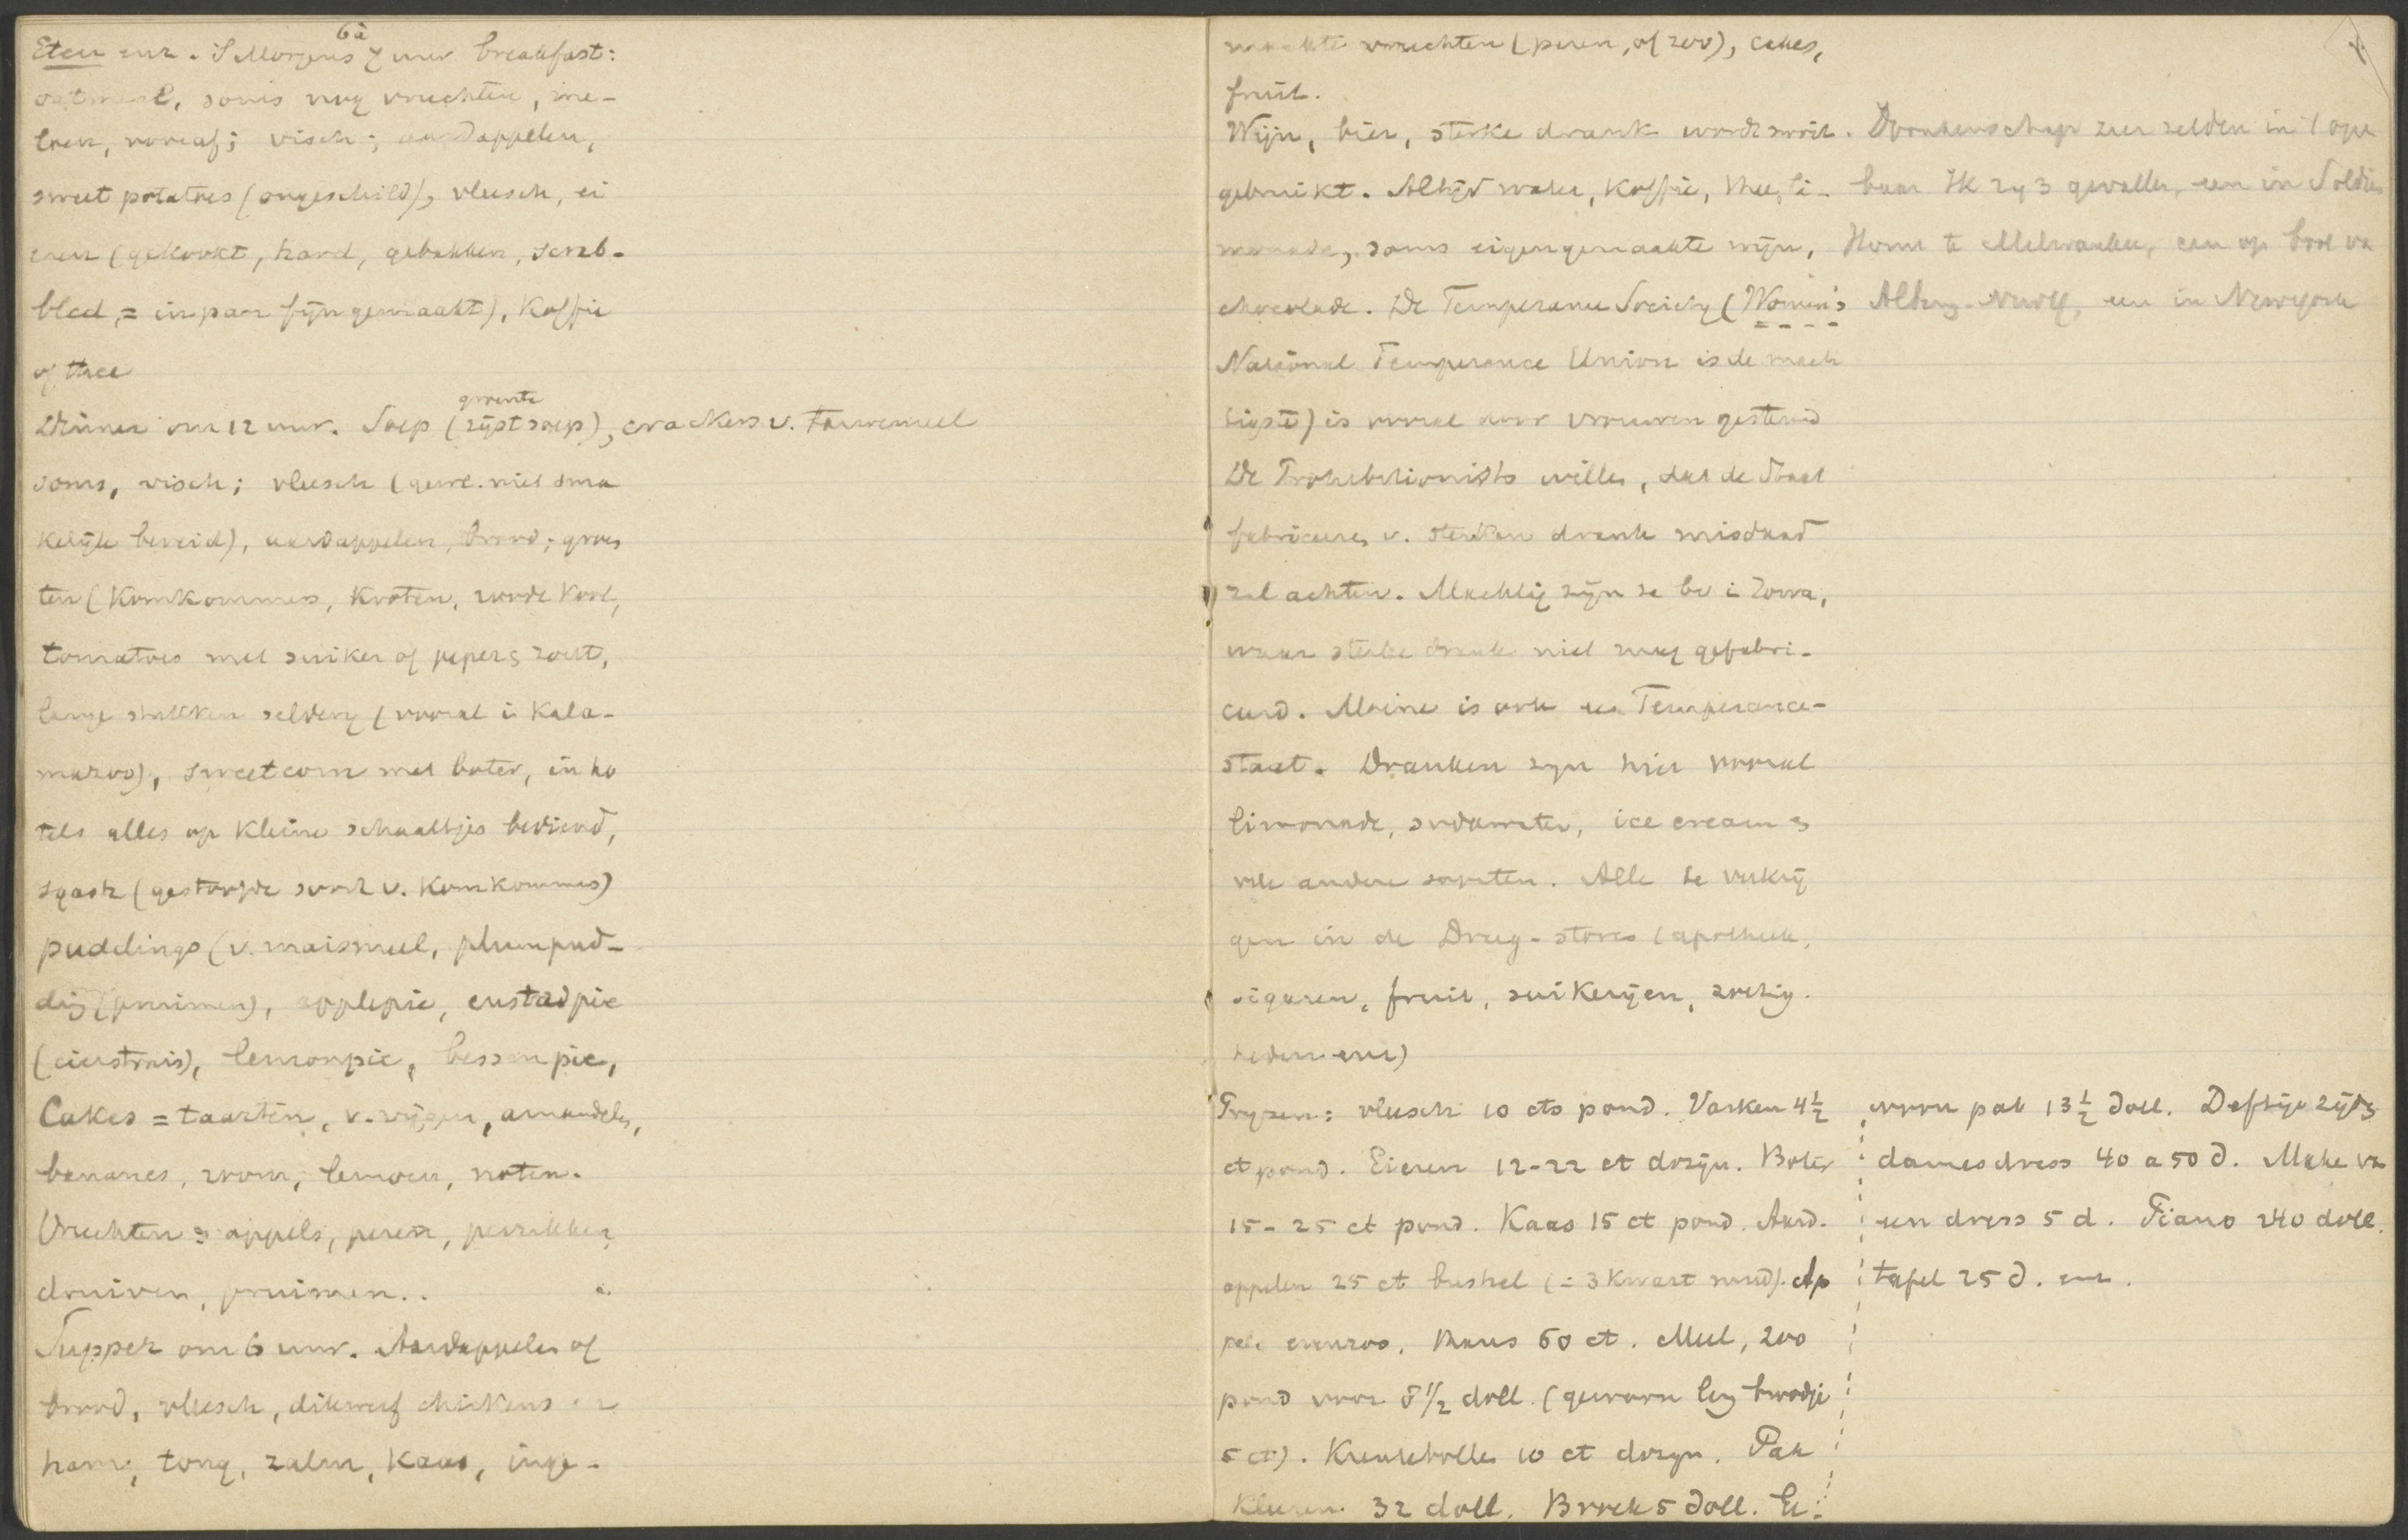 Eten enz. 'S Morgens 6 à 7 uur breakfast:
oatmeal, soms nog vruchten, me-
loen, vooraf; visch; aardappelen,
sweet potatoes (ongeschild), vleesch, ei
eren (gekookt, hard, gebakken, scrab-
bled, = in pan fijn gemaakt), koffie
of thee
Dinner om 12 uur. Soep (groente rijstsoep), crackers v. Tarwemeel
soms, visch; vleesch (gew. niet sma
kelijk bereid), aardappelen, brood; groen
ten (Komkommers, kroten, roode kool,
tomatoes met suiker of peper en zout,
lange stukken seldery (vooral in Kala-
mazoo), sweetcorn met boter, in ho
tels alles op kleine schaaltjes bediend,
sqash (gestoofde soort v. Komkommers)
puddings (v. maismeel, plumpud-
ding (pruimen), applepie, custadpie
(eierstruis), lemonpie, bessenpie,
Cakes = taarten, v. vijgen, amandelen,
bananes, room, lemoen, noten.
Vruchten = appels, peren, perzikken,
druiven, pruimen..
Supper om 6 uur. Aardappelen of
brood, vleesch, dikwerf chickens en
ham, tong, zalm, kaas, inge-
maakte vruchten (peren, of zoo), cakes,
fruit.
Wijn, bier, sterke drank wordt nooit
gebruikt. Altijd water, koffie, thee, li-
monade, soms eigengemaakte wijn,
chocolade. De Temperance Society (Women's
National Temperance Union is de mach
tigste) is vooral door vrouwen gesteund
De Prohebitionists willen, dat de Staat
fabriceeren v. sterken drank misdaad
zal achten. Machtig zijn ze bv in Iowa,
waar sterke drank niet mag gefabri-
ceerd. Maine is ook een Temperance-
staat. Dranken zyn hier vooral
limonade, sodawater, ice cream en
vele andere soorten. Alle te verkrij
gen in de Drug-stores (apotheek,
sigaren, fruit, suikerijen, zoetig-
heden enz)
Prijzen: vleesch 10 cts pond. Varken 4½
ct pond. Eieren 12-22 ct dozijn. Boter
15-25 ct pond. Kaas 15 ct pond. Aard-
appelen 25 ct bushel (= 3 kwart mud). Ap
pels evenzoo. Mais 60 ct. Meel, 200
pond voor 8 1/2 doll. (gewoon brodje
5 ct). Krentebollen 10 ct dozyn. Pak
Kleeren 32 doll. Broek 5 doll. Ei-
Dronkenschap zeer zelden in 't open
baar Ik zag 3 gevallen, een in Soldiers
Home te Milwaukee, een op boot van
een in Newyork
pak 13½ doll. Deftige zijden
damesdress 40 a 50 d. Make van
een dress 5 d. Piano 240 doll.
tafel 25 d. enz.